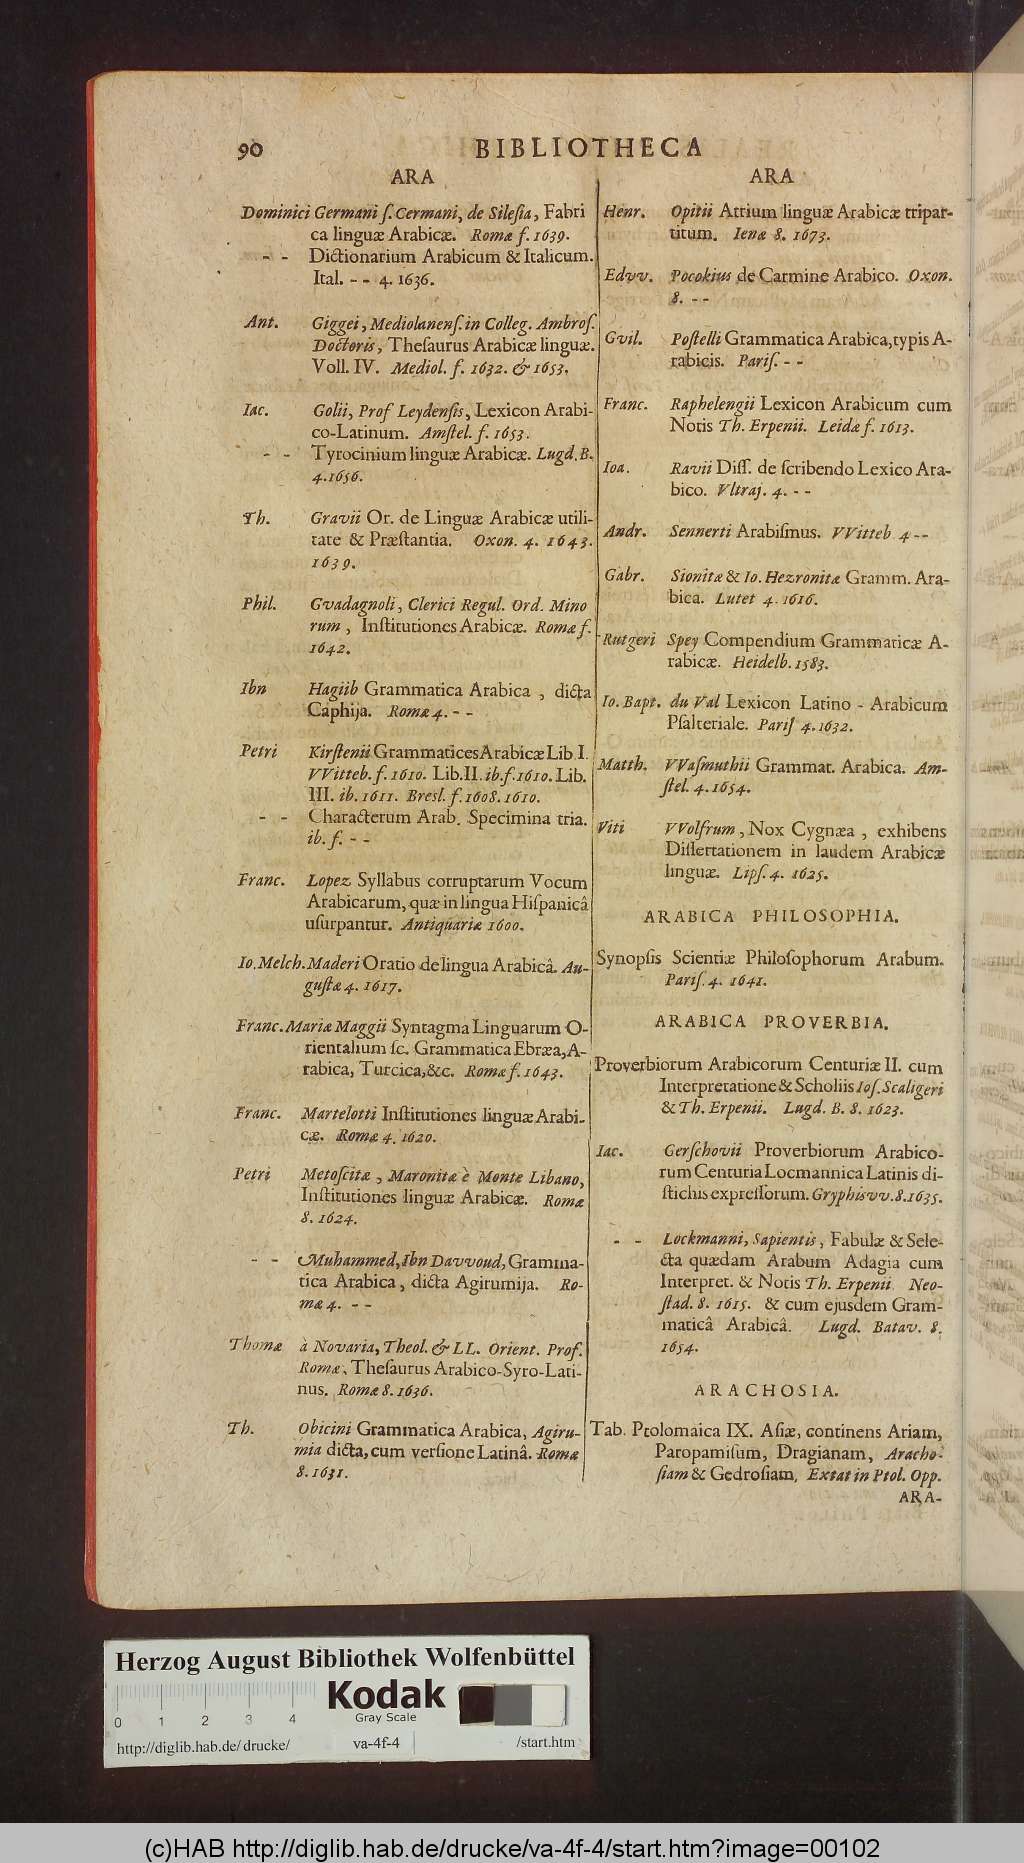 90
BIBLIOTHECA
ARA
Dominici Germani ſ. Cermani, de Sileſia, Fabri
ca linguæ Arabicæ. Romæ f. 1639.
- - Dictionarium Arabicum & Italicum.
Ital. - - 4. 1636.
Ant. Giggei, Mediolanenſ. in Colleg. Ambroſ.
Doctoris, Theſaurus Arabicæ linguæ.
Voll. IV. Mediol. f. 1632. & 1653.
Iac. Golii, Prof Leydenſis, Lexicon Arabi-
co-Latinum. Amſtel. f. 1653.
- - Tyrocinium linguæ Arabicæ. Lugd. B.
4.1656.
Th. Gravii Or. de Linguæ Arabicæ utili-
tate & Præſtantia. Oxon. 4. 1643.
1639.
Phil. Gvadagnoli, Clerici Regul. Ord. Mino
rum, Inſtitutiones Arabicæ. Romæ f.
1642.
Ibn Hagiib Grammatica Arabica, dicta
Caphija. Romæ 4. - -
Petri Kirſtenii Grammatices Arabicæ Lib I.
VVitteb. f. 1610. Lib. II. ib. f. 1610. Lib.
III. ib. 1611. Bresl. f. 1608. 1610.
- - Characterum Arab. Specimina tria.
ib. f. - -
Franc. Lopez Syllabus corruptarum Vocum
Arabicarum, quæ in lingua Hiſpanicâ
uſurpantur. Antiquariæ 1600.
Io. Melch. Maderi Oratio de lingua Arabicâ. Au-
guſtæ 4. 1617.
Franc. Mariæ Maggii Syntagma Linguarum O-
rientalium ſc. Grammatica Ebræa, A-
rabica, Turcica, &c. Romæ f. 1643.
Franc. Martelotti Inſtitutiones linguæ Arabi-
cæ. Romæ 4. 1620.
Petri Metoſcitæ, Maronitæ è Monte Libano,
Inſtitutiones linguæ Arabicæ. Romæ
8. 1624.
- - Muhammed, Ibn Davvoud, Gramma-
tica Arabica, dicta Agirumija. Ro-
mæ 4. - -
Thomæ à Novaria, Theol. & LL. Orient. Prof.
Romæ, Theſaurus Arabico-Syro-Lati-
nus. Romæ 8. 1636.
Th. Obicini Grammatica Arabica, Agiru-
mia dicta, cum verſione Latinâ. Romæ
8. 1631.
ARA
Henr. Opitii Atrium linguæ Arabicæ tripar-
titum. Ienæ 8. 1673.
Edvv. Pocokius de Carmine Arabico. Oxon.
8. - -
Gvil. Poſtelli Grammatica Arabica, typis A-
rabicis. Pariſ. - -
Franc. Raphelengii Lexicon Arabicum cum
Notis Th. Erpenii. Leidæ f. 1613.
Ioa. Ravii Diſſ. de ſcribendo Lexico Ara-
bico. Vltraj. 4. - -
Andr. Sennerti Arabiſmus. VVitteb 4 - -
Gabr. Sionitæ & Io. Hezronitæ Gramm. Ara-
bica. Lutet 4. 1616.
Rutgeri Spey Compendium Grammaticæ A-
rabicæ. Heidelb. 1583.
Io. Bapt. du Val Lexicon Latino - Arabicum
Pſalteriale. Pariſ 4. 1632.
Matth. VVaſmuthii Grammat. Arabica. Am-
ſtel. 4. 1654.
Viti VVolfrum, Nox Cygnæa, exhibens
Diſſertationem in laudem Arabicæ
linguæ. Lipſ. 4. 1625.
ARABICA PHILOSOPHIA.
Synopſis Scientiæ Philoſophorum Arabum.
Pariſ. 4. 1641.
ARABICA PROVERBIA.
Proverbiorum Arabicorum Centuriæ II. cum
Interpretatione & Scholiis Ioſ. Scaligeri
& Th. Erpenii. Lugd. B. 8. 1623.
Iac. Gerſchovii Proverbiorum Arabico-
rum Centuria Locmannica Latinis di-
ſtichis expreſſorum. Gryphisvv. 8. 1635.
- - Lockmanni, Sapientis, Fabulæ & Sele-
cta quædam Arabum Adagia cum
Interpret. & Notis Th. Erpenii Neo-
ſtad. 8. 1615. & cum ejusdem Gram-
maticâ Arabicâ. Lugd. Batav. 8.
1654.
ARACHOSIA.
Tab. Ptolomaica IX. Aſiæ, continens Ariam,
Paropamiſum, Dragianam, Aracho-
ſiam & Gedroſiam. Extat in Ptol. Opp.
ARA-
Herzog August Bibliothek Wolfenbüttel
Kodak
Gray Scale
0 1 2 3 4
http://diglib.hab.de/drucke/ va-4f-4 /start.htm
(c)HAB http://diglib.hab.de/drucke/va-4f-4/start.htm?image=00102